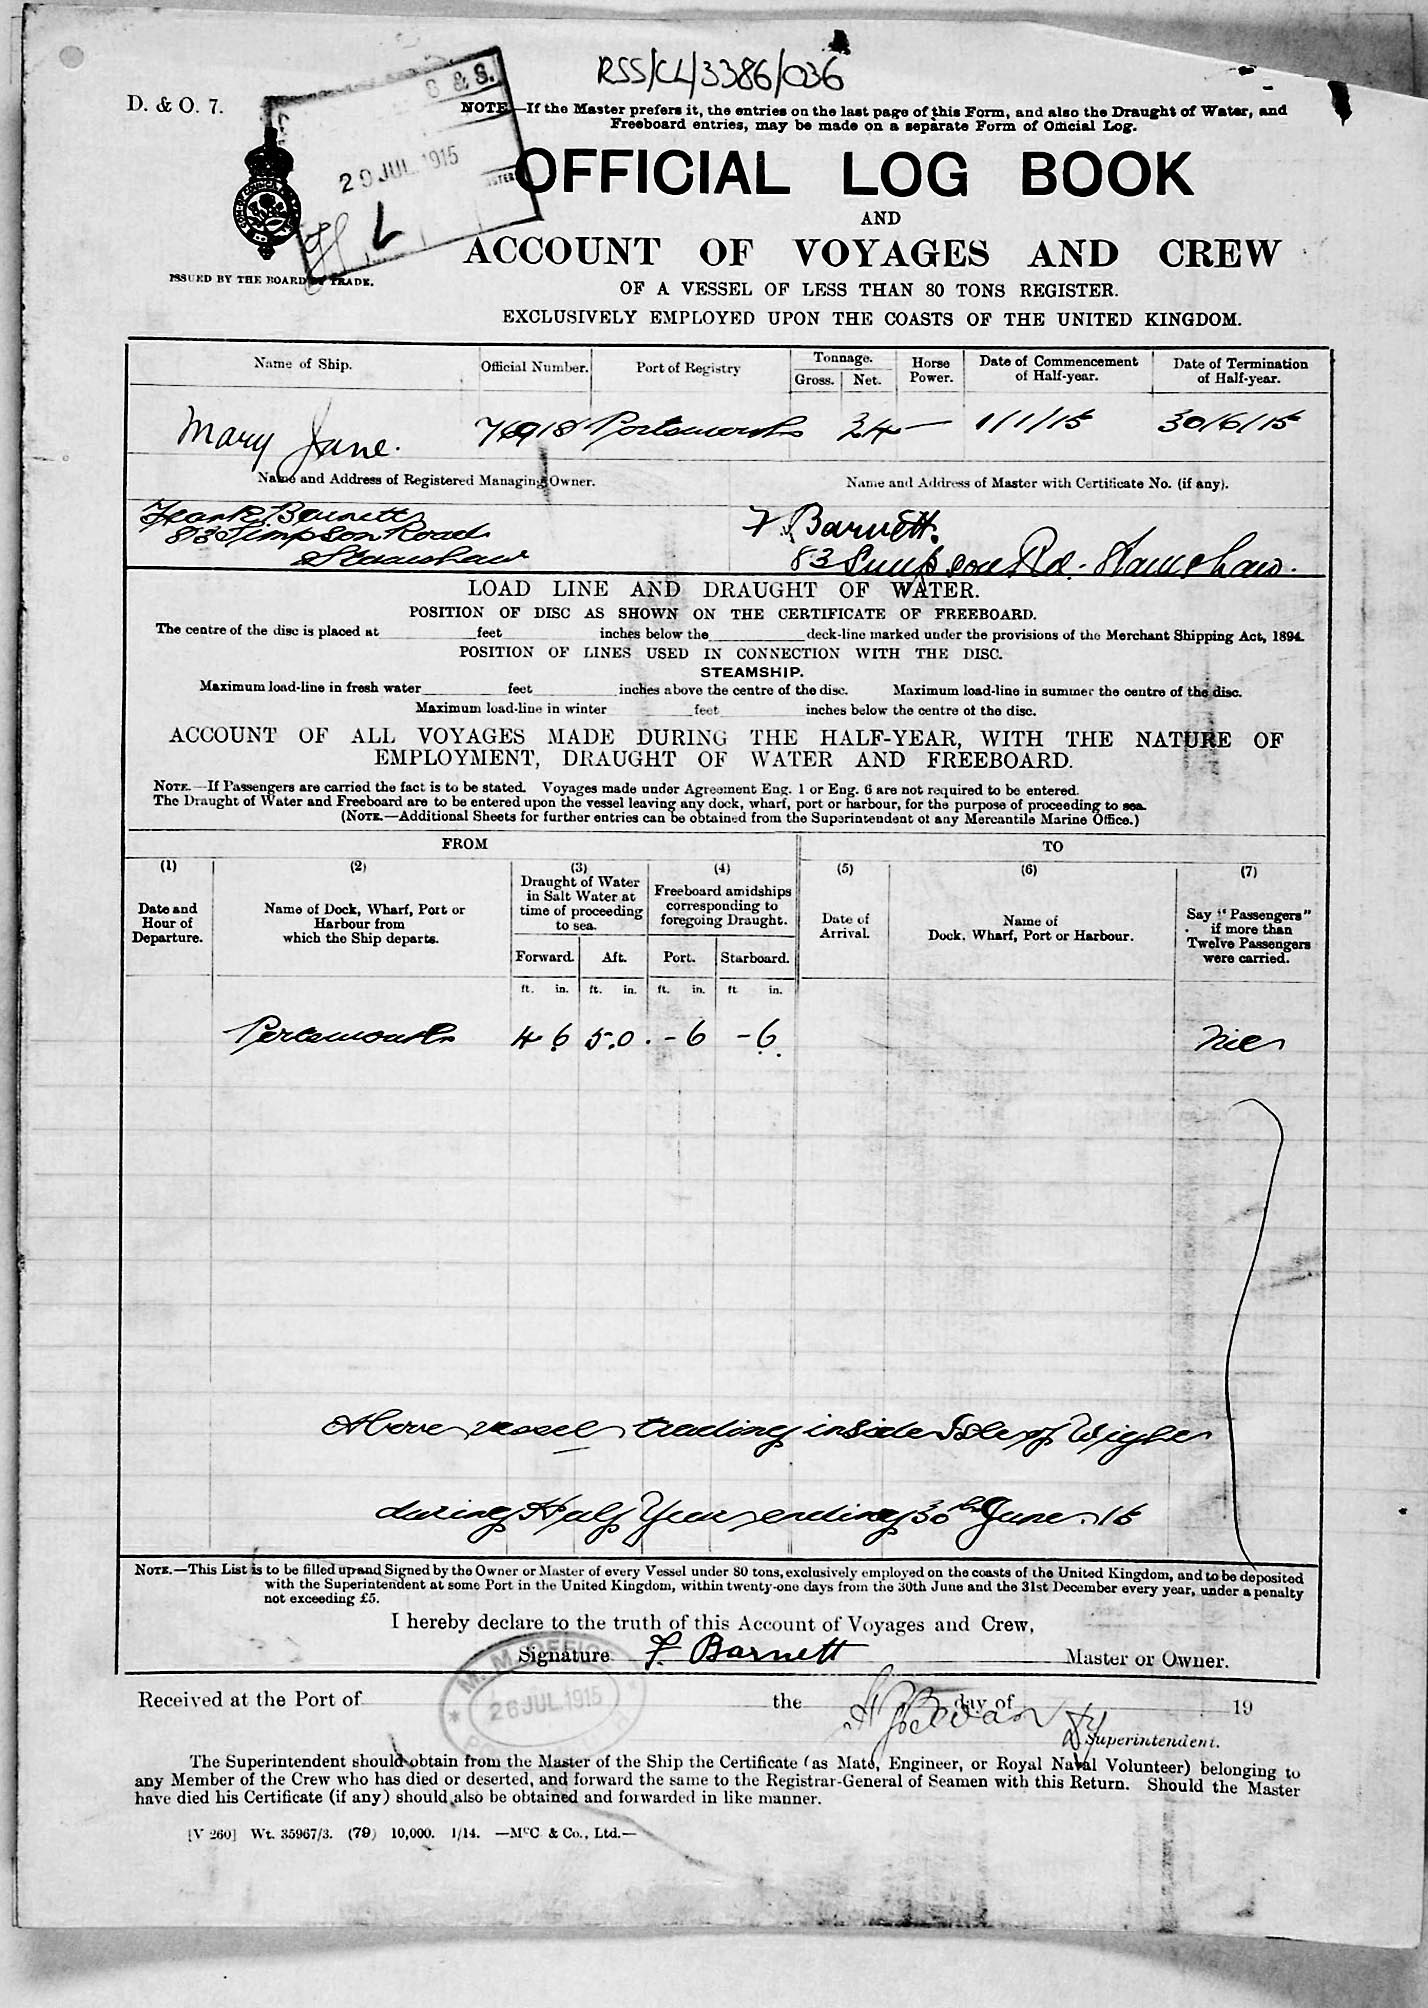 RSS/CL/3386/036
D. & O. 7.
S & S.
29 JUL 1915
NOTE.—If the Master prefers it, the entries on the last page of this Form, and also the Draught of Water, and
Freeboard entries, may be made on a separate Form of Official Log.
OFFICIAL LOG BOOK
AND
ACCOUNT OF VOYAGES AND CREW
ISSUED BY THE BOARD OF TRADE.
OF A VESSEL OF LESS THAN 80 TONS REGISTER.
EXCLUSIVELY EMPLOYED UPON THE COASTS OF THE UNITED KINGDOM.
Name of Ship. Official Number. Port of Registry Tonnage. Gross. Net. Horse Power. Date of Commencement of Half-year. Date of Termination of Half-year.
Mary Jane. Portsmouth 24 — 1/1/15 30/6/15
Name and Address of Registered Managing Owner. Name and Address of Master with Certificate No. (if any).
Frank Barnett F. Barnett.
83 Simpson Road 83 Simpson Rd. Stamshaw.
Stamshaw
LOAD LINE AND DRAUGHT OF WATER.
POSITION OF DISC AS SHOWN ON THE CERTIFICATE OF FREEBOARD.
The centre of the disc is placed at feet inches below the deck-line marked under the provisions of the Merchant Shipping Act, 1894.
POSITION OF LINES USED IN CONNECTION WITH THE DISC.
STEAMSHIP.
Maximum load-line in fresh water feet inches above the centre of the disc. Maximum load-line in summer the centre of the disc.
Maximum load-line in winter feet inches below the centre of the disc.
ACCOUNT OF ALL VOYAGES MADE DURING THE HALF-YEAR, WITH THE NATURE OF
EMPLOYMENT, DRAUGHT OF WATER AND FREEBOARD.
NOTE.—If Passengers are carried the fact is to be stated. Voyages made under Agreement Eng. 1 or Eng. 6 are not required to be entered.
The Draught of Water and Freeboard are to be entered upon the vessel leaving any dock, wharf, port or harbour, for the purpose of proceeding to sea.
(NOTE.—Additional Sheets for further entries can be obtained from the Superintendent of any Mercantile Marine Office.)
FROM TO
(1) (2) (3) (4) (5) (6) (7)
Date and Hour of Departure.
Name of Dock, Wharf, Port or Harbour from which the Ship departs.
Draught of Water in Salt Water at time of proceeding to sea.
Freeboard amidships corresponding to foregoing Draught.
Date of Arrival.
Name of Dock, Wharf, Port or Harbour.
Say "Passengers" if more than Twelve Passengers were carried.
Forward. Aft. Port. Starboard.
ft. in. ft. in. ft. in. ft in.
Portsmouth 4 6 5.0. - 6 - 6 Nil
Above vessel trading inside Isle of Wight
during Half Year ending 30th June. 15
NOTE.—This List is to be filled up and Signed by the Owner or Master of every Vessel under 80 tons, exclusively employed on the coasts of the United Kingdom, and to be deposited
with the Superintendent at some Port in the United Kingdom, within twenty-one days from the 30th June and the 31st December every year, under a penalty
not exceeding £5.
I hereby declare to the truth of this Account of Voyages and Crew,
Signature F Barnett Master or Owner.
M. M. OFFICE
26 JUL 1915
Received at the Port of the day of 19
Superintendent.
The Superintendent should obtain from the Master of the Ship the Certificate (as Mate, Engineer, or Royal Naval Volunteer) belonging to
any Member of the Crew who has died or deserted, and forward the same to the Registrar-General of Seamen with this Return. Should the Master
have died his Certificate (if any) should also be obtained and forwarded in like manner.
[V 260] Wt. 35967/3. (79) 10,000. 1/14. —McC & Co., Ltd.—